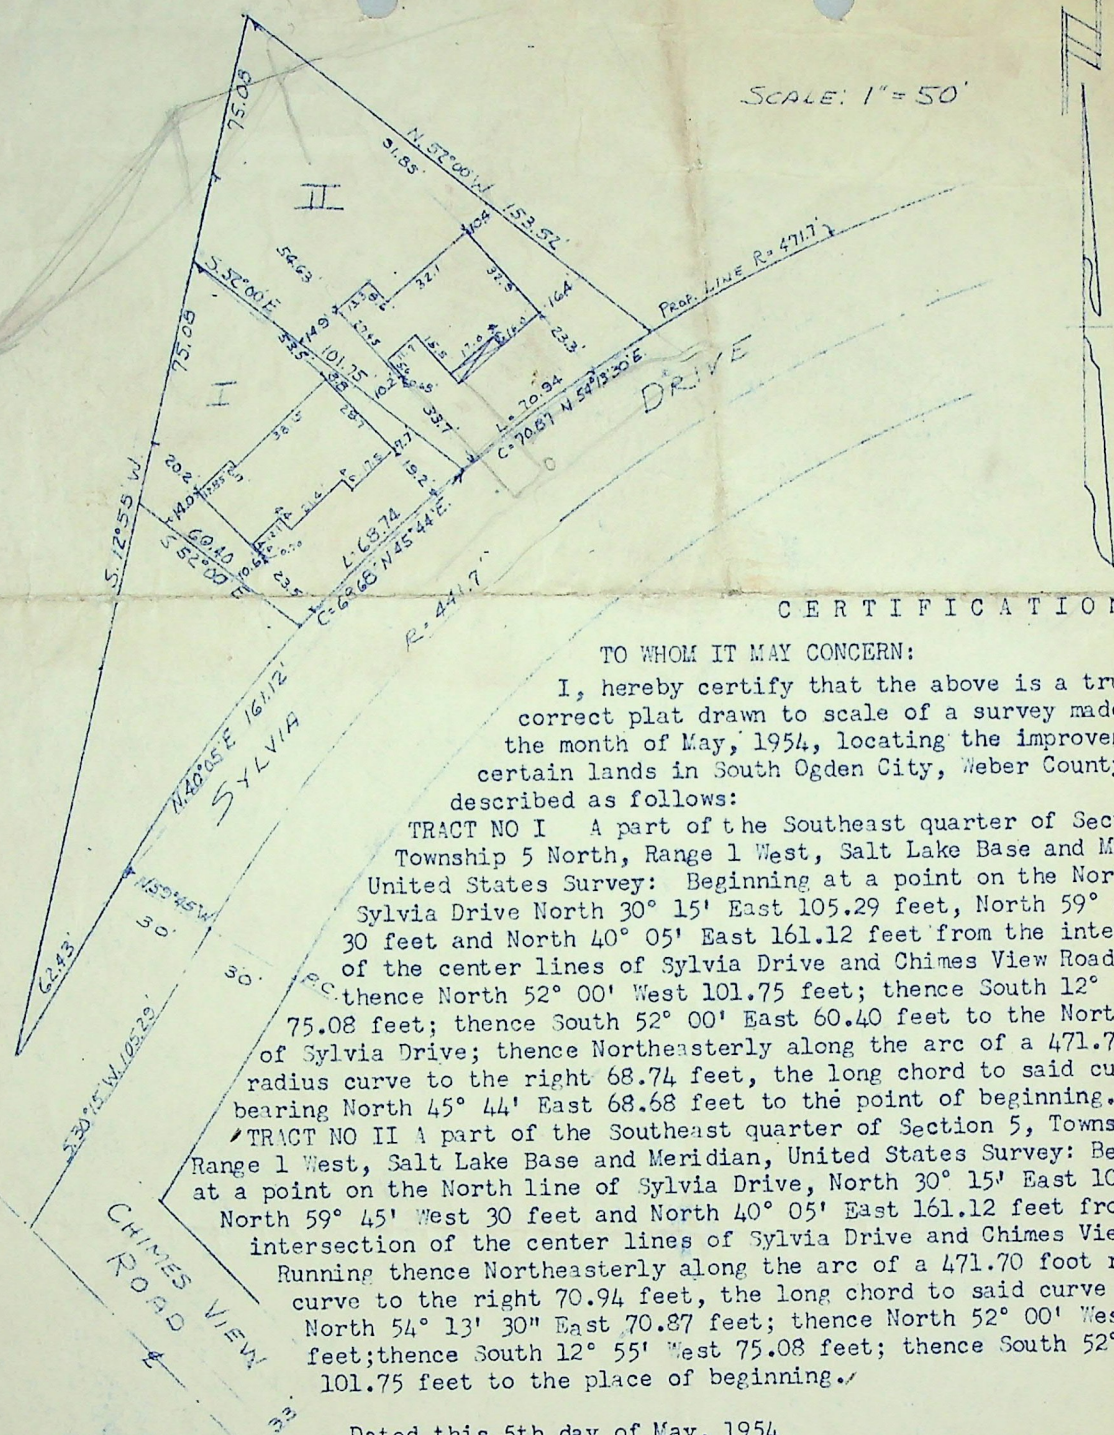 SCALE: 1" = 50'
75.08
N. 52°00' W 153.52'
91.85'
II
10.4
54.63
32.1
32.5
16.4
23.3
PROP. LINE R= 471.7'
S. 52°00' E
101.75
53.5
14.9
13.3
27.45
15.5
17.0
10.2
33.7
L= 70.94
C= 70.87 N 54°13'30" E
DRIVE
75.08
I
3.8
28.7
38.5
20.2
14.0
12.85
7.7
17.5
19.2
21.4
60.40
S 52°00' E
10.6
23.5
L= 68.74
C= 68.68' N 45°44' E.
S. 12°55' W
R= 441.7'
N. 40°05' E 161.12'
SYLVIA
N59°45'W
30'
30'
P.C.
62.43'
S.30°15'W. 105.29'
CHIMES VIEW
ROAD
33'
CERTIFICATION
TO WHOM IT MAY CONCERN:
I, hereby certify that the above is a tru
correct plat drawn to scale of a survey made
the month of May, 1954, locating the improvem
certain lands in South Ogden City, Weber County
described as follows:
TRACT NO I A part of the Southeast quarter of Sec
Township 5 North, Range 1 West, Salt Lake Base and M
United States Survey: Beginning at a point on the Nor
Sylvia Drive North 30° 15' East 105.29 feet, North 59°
30 feet and North 40° 05' East 161.12 feet from the inte
of the center lines of Sylvia Drive and Chimes View Road
thence North 52° 00' West 101.75 feet; thence South 12°
75.08 feet; thence South 52° 00' East 60.40 feet to the Nort
of Sylvia Drive; thence Northeasterly along the arc of a 471.7
radius curve to the right 68.74 feet, the long chord to said cu
bearing North 45° 44' East 68.68 feet to the point of beginning.
TRACT NO II A part of the Southeast quarter of Section 5, Towns
Range 1 West, Salt Lake Base and Meridian, United States Survey: Be
at a point on the North line of Sylvia Drive, North 30° 15' East 10
North 59° 45' West 30 feet and North 40° 05' East 161.12 feet fro
intersection of the center lines of Sylvia Drive and Chimes Vie
Running thence Northeasterly along the arc of a 471.70 foot r
curve to the right 70.94 feet, the long chord to said curve
North 54° 13' 30" East 70.87 feet; thence North 52° 00' Wes
feet;thence South 12° 55' West 75.08 feet; thence South 52°
101.75 feet to the place of beginning.
Dated this 5th day of May, 1954